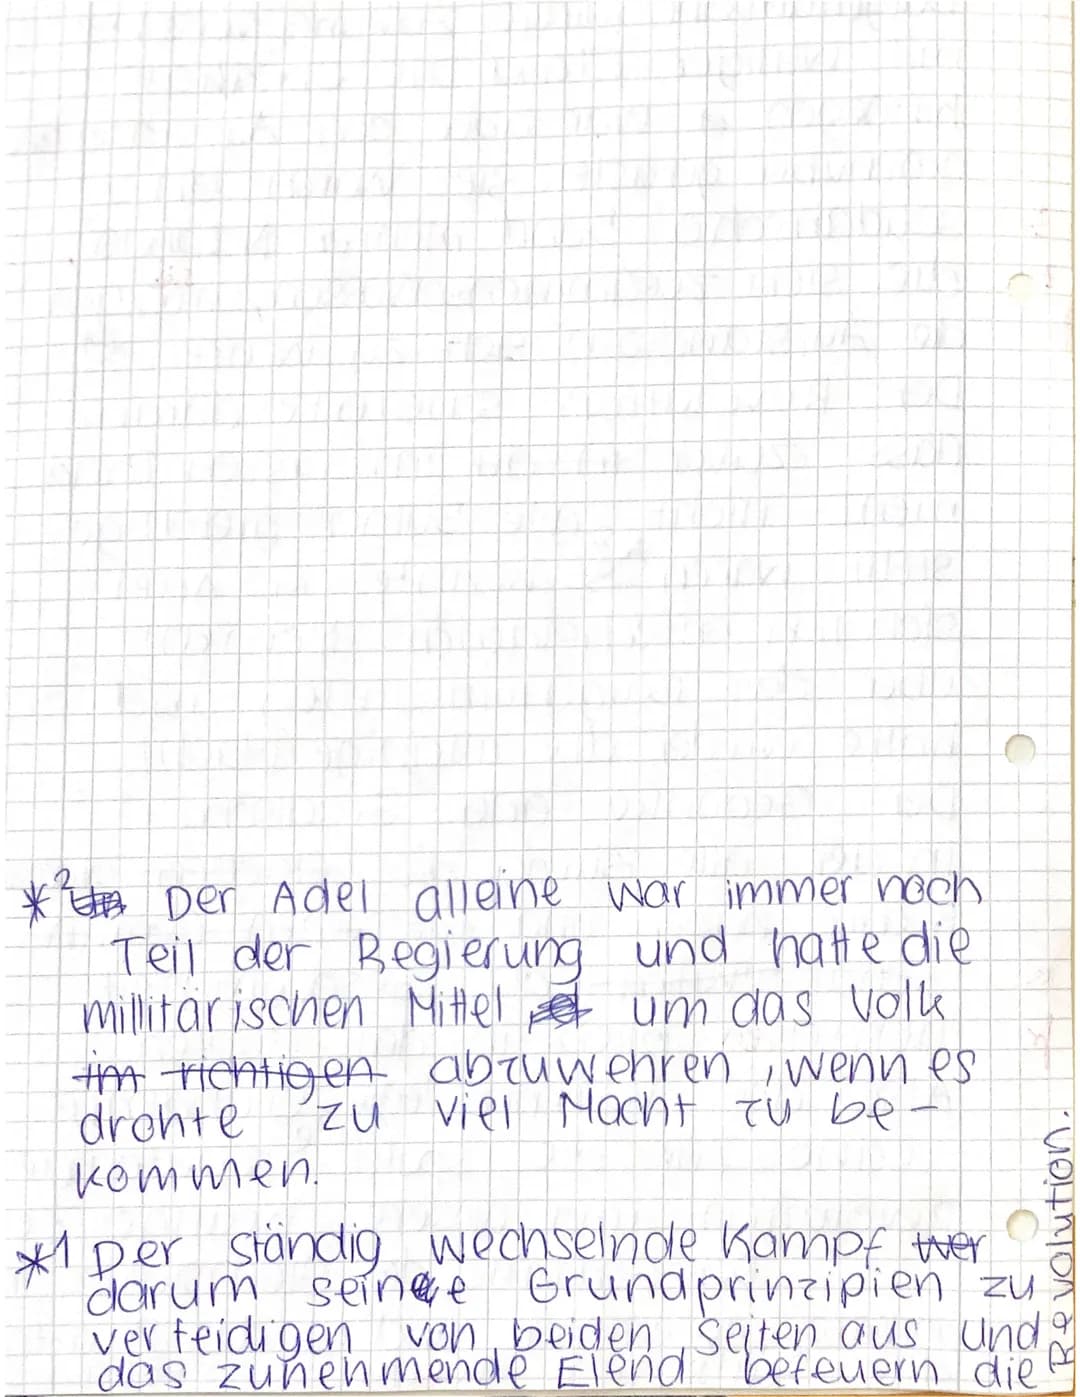 *² Der Adel alleine war immer noch
Teil der Regierung und hatte die
millitärischen Mittel um das Volk
im richtigen abzuwehren, wenn es
drohte zu viel Macht zu be-
kommen.
*1 Der ständig wechselnde Kampf wer
darum seine Grundprinzipien zu
verteidigen von beiden Seiten aus und
das zunehmende Elend befeuern die
Revolution.